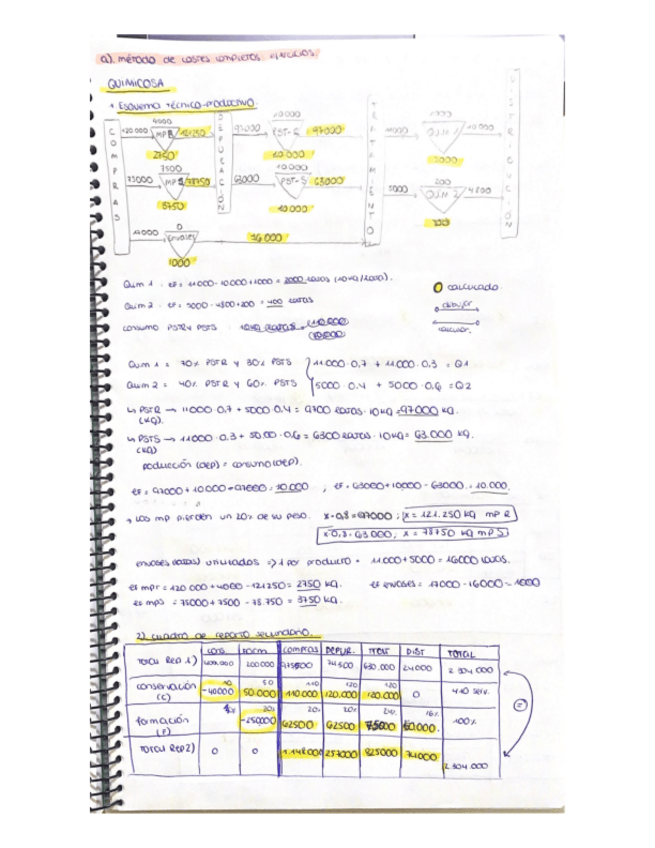 a) método de costes completos. ejercicios.
QUIMICOSA
1. Esquema técnico-productivo.
COMPRAS
120.000
4000
MP R
121250
2750
DEPURACIÓN
97000
10.000
PST-R
97000
10.000
TRATAMIENTO
11000
1000
QUIM 1
10.000
DISTRIBUCIÓN
75000
7500
MP S
78750
3750
63000
10.000
PST-S
63000
10.000
5000
200
QUIM 2
4800
17000
0
Envases
16.000
1000
Quim 1 : ef = 11000 - 10000 + 1000 = 2000 (10kg/
Quim 2 : ef = 5000 - 4800 + 200 = 400
calculado.
dibujar
calcular.
consumo PSTR y PSTS :
Quim 1 = 70% PSTR y 30% PSTS 11.000 · 0.7 + 11.000 · 0.3 = Q1
Quim 2 = 40% PSTR y 60% PSTS 5000 · 0.4 + 5000 · 0.6 = Q2
↳ PSTR → 11000 · 0.7 + 5000 · 0.4 = 9700 · 10kg = 97000 kg.
(kg).
↳ PSTS → 11000 · 0.3 + 5000 · 0.6 = 6300 · 10kg = 63.000 kg.
(kg)
producción (dep) = consumo (dep).
ef = 97000 + 10000 - 97000 = 10.000 ; ef = 63000 + 10.000 - 63000 = 10.000.
→ Las mp pierden un 20% de su peso. x · 0,8 = 97000 ; x = 121.250 kg mp R
x · 0,8 = 63.000 ; x = 78750 kg mp S
envases utilizados => 1 por producto = 11.000 + 5000 = 16000
ef mpr = 120.000 + 4000 - 121250 = 2750 kg. ef envases = 17000 - 16000 = 1000
ef mps = 75000 + 7500 - 78.750 = 3750 kg.
2) cuadro de reparto secundario.
cons. form. compras DEPUR. TRAT DIST TOTAL
Total Rep 1) 200.000 630.000 24.000 2.304.000
conservación (C) 10 50 110 120 120
-40000 50.000 110.000 120.000 120.000 0 410 serv.
formación (F) 20% 20% 20% 24% 16%
-250000 62500 62500 75000 50.000. 100%
TOTAL REP 2) 0 0 1.148.000 257000 825000 74000 2.304.000
(=)